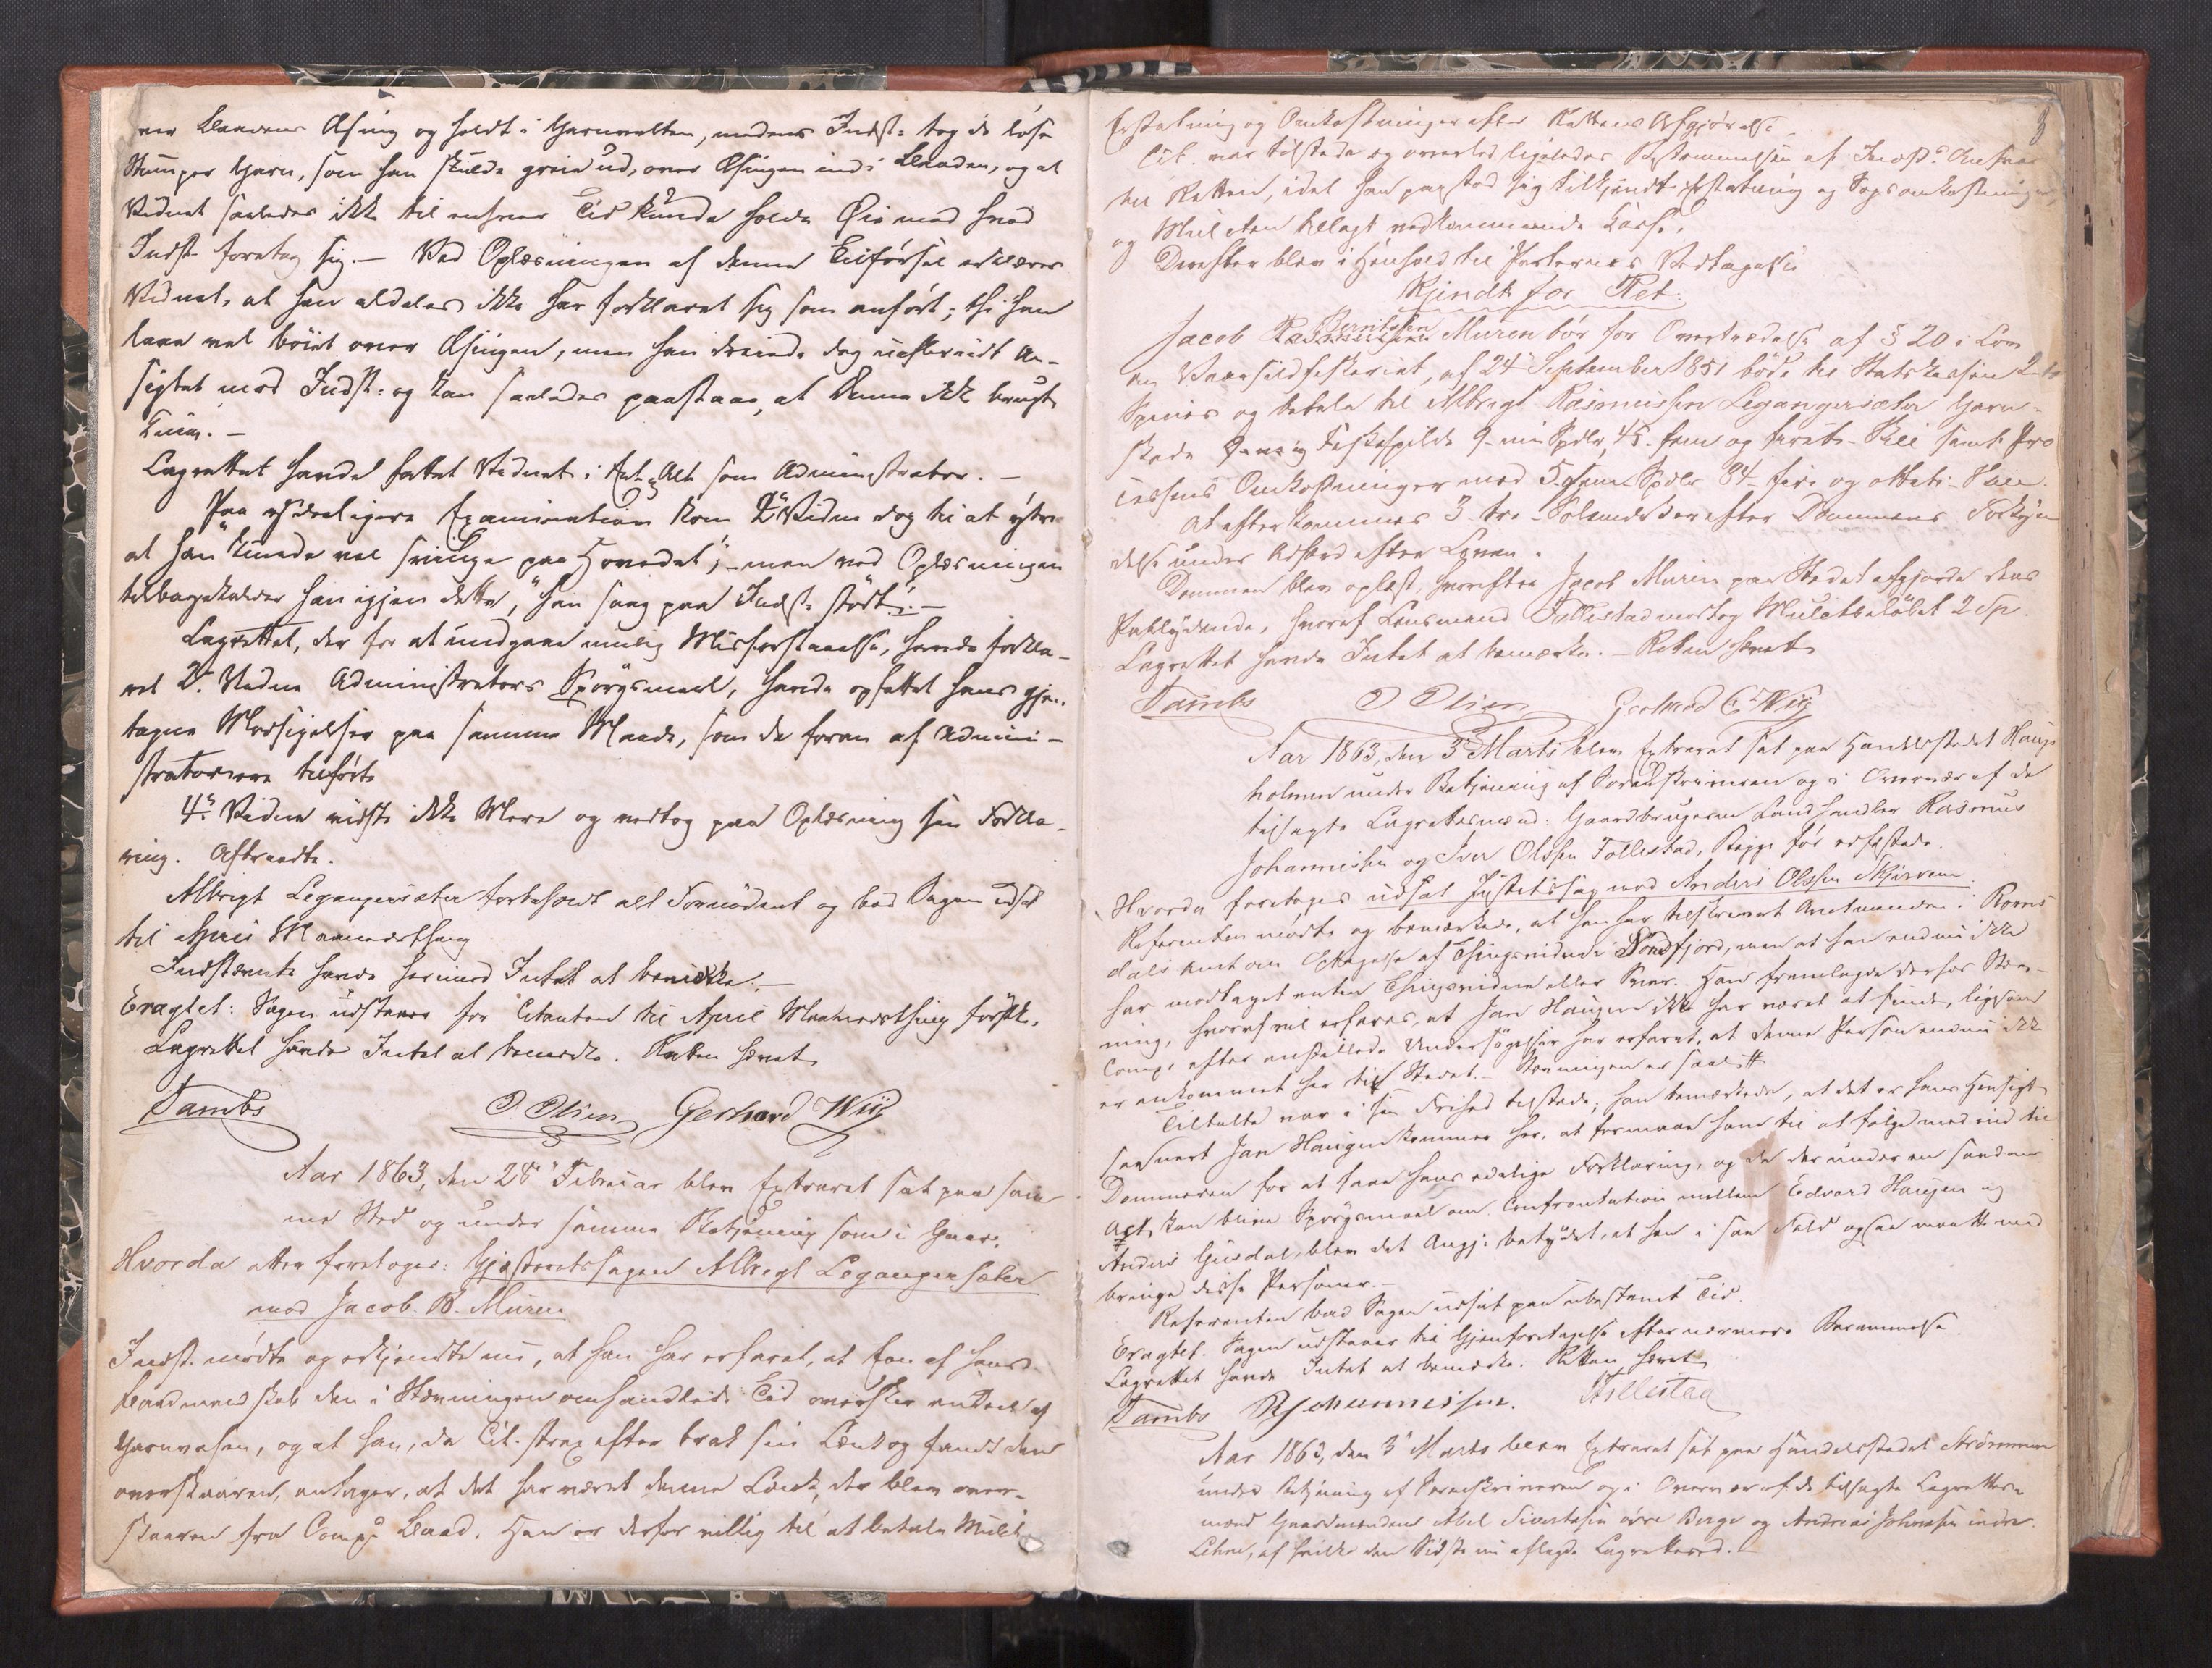 over Baadens Æsing og holdt i Garnvolten, medens Indst: tog de løse
Stumper Garn, som han skulde greie ud, over Æsingen ind i Baaden, og at
Vidnet saaledes ikke til enhver Tid kunde holde Øie med hvad
Indst foretog sig. — Ved Oplæsningen af denne Tilførsel erklærer
Vidnet, at han aldeles ikke har forklaret sig som anført; thi han
laae vel bøiet over Æsingen, men han dreiede dog uafbrudt An-
sigtet mod Indst: og kan saaledes paastaae, at Denne ikke brugte
Kniv. —
Lagrettet havde fattet Vidnet i Et og Alt som Administrator. —
Paa yderligere Examination kom 2det Vidne dog til at ytre
at han "kunde vel svinge paa Hovedet"; — men ved Oplæsningen
tilbagekalder han igjen dette, "han saag paa Indst: stødt". —
Lagrettet, der for at undgaae mulig Misforstaaelse, havde forkla-
ret 2. Vidne Administrators Spørgsmaal, havde opfattet hans gjen-
tagne Modsigelser paa samme Maade, som de foran af Admini-
stratoren ere tilførte
4de Vidne vidste ikke Mere og vedtog paa Oplæsning sin Forkla-
ring. Aftraadte.
Albrigt Legangersæter forbeholdt alt Fornødent og bad Sagen udsat
til April Maanedsthing
Indstævnte havde hermed Intet at bemærke. —
Eragtet: Sagen udstaaer for Citanten til April Maanedsthing førstk.
Lagrettet havde Intet at bemærke. Retten hævet
Tambs O Olsen Gerhard Wiig
Aar 1863, den 28de Februar blev Extraret sat paa sam-
me Sted og under samme Betjening som i Gaar.
Hvorda atter foretoges: Gjæsteretssagen Albrigt Legangersæter
mod Jacob B. Muren
Indst. mødte og erkjendte nu, at han har erfaret, at Een af hans
Baadmandskab den i Stævningen omhandlede Tid overskar endeel af
Garnvasen, og at han, da Cit. strax efter brak sin Lænk og fandt den
overskaaren, antager, at det har været denne Lænk, der blev over-
skaaren fra Comp. Baad. Han er derfor villig til at betale Mulct
3
Erstatning og Omkostninger efter Rettens Afgjørelse
Cit. var tilstede og overlod ligeledes Bestemmelsen af Indst. Ansvar
til Retten, idet han paastod sig tilkjendt Erstatning og Sagsomkostninger,
og Mulcten tillagt vedkommende Casse.
Derefter blev i Henhold til Parternes Vedtagelse
Kjendt for Ret:
Jacob Berntsen Muren bør for Overtrædelse af § 20 i Lov
om Vaarsildfiskeriet, af 24 September 1851 bøde til Statskassen 2-to
Species og betale til Albrigt Rasmussen Legangersæter Garn-
skade og Fiskespilde 9-ni Spdlr, 45-fem og firti-Skil samt Pro
cessens Omkostninger med 5-fem-Spdlr 84-fire og otteti-Skil.
At efterkommes 3 tre-Solemærker efter Dommens Forkyn
delse under Adfærd efter Loven.
Dommen blev oplæst, hvorefter Jacob Muren paa Stedet afgjorde dens
Paalydende, hvoraf Lensmand Tollestad modtog Mulctbeløbet 2 Sp
Lagrettet havde Intet at bemærke. — Retten hævet
Tambs O Olsen Gerhard C Wiig
Aar 1863, den 3de Marts blev Extraret sat paa Handelsstedet Hauge
holmen under Betjening af Sorenskriveren og i Overvær af de
tilsagte Lagrettesmænd: Gaardbrugeren Landhandler Rasmus
Johannesen og Iver Olsen Tollestad, Begge før edfæstede.
Hvorda foretoges udsat Justitssag mod Anders Olsen Skjerven.
Referenten mødte og bemærkede, at han har tilskrevet Amtmanden i Roms
dals Amt om Optagelse af Thingsvidne i Nordfjord, men at han endnu ikke
har modtaget enten Thingsvidne eller Svar. Han fremlagde derhos Stæv-
ning, hvoraf vil erfares, at Jan Haugen ikke har været at finde, ligesom
Comp: efter anstillede Undersøgelser har erfaret, at denne Person endnu ikke
er ankommet her til Stedet. — Stævningen er saal.
Tiltalte var i sin Frihed tilstede; han bemærkede, at det er hans Hensigt
saasnart Jan Haugen kommer her, at formaae ham til at følge med ind til
Dommeren for at faae hans edelige Forklaring, og da der under en saadan
Act kan blive Spørgsmaal om Confrontation mellem Edvard Haugen og
Anders Gusdal, blev det Angj: betydet, at han i saa Fald ogsaa maatte med
bringe disse Personer. —
Referenten bad Sagen udsat paa ubestemt Tid.
Eragtet. Sagen udstaaer til Gjenforetagelse efter nærmere Berammelse
Lagrettet havde Intet at bemærke. Retten hævet
Tambs RJohannessen. Tollestad
Aar 1863, den 3de Marts blev Extraret sat paa Handelsstedet Strømmen
under Betjening af Sorenskriveren og i Overvær af de tilsagte Lagrettes-
mænd Gaardmændene Abel Sivertsen øvre Berge og Andreas Johnsen indre
Lehne, af hvilke den Sidste nu aflagde Lagrettesed. —